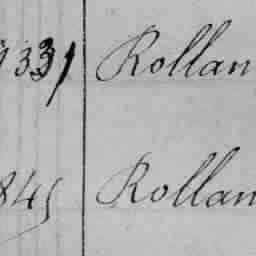 9331 Rollan
845 Rollan